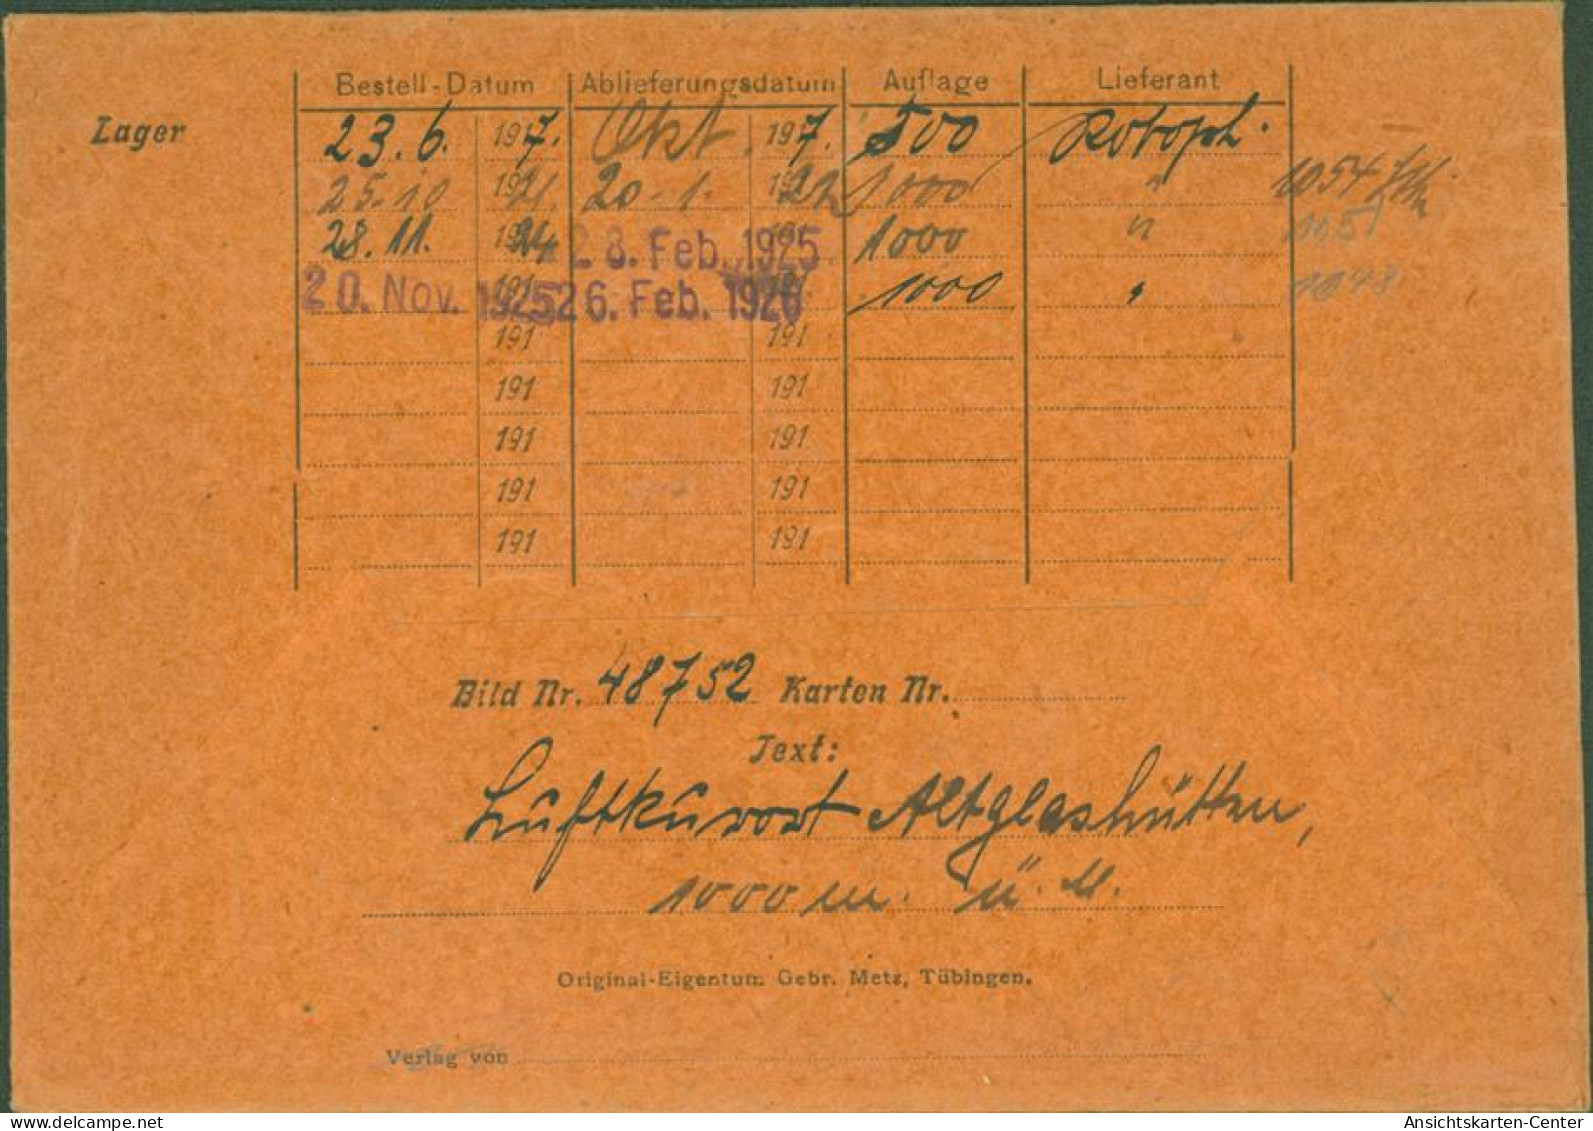 Bestell-Datum Ablieferungsdatum Auflage Lieferant
Lager 23.6. 1917. Okt. 197. 500 Rotoph.
25.10 1921. 20.1. 22 1000 " 1054
28.11. 24 28. Feb. 1925 1000 " 1051
20. Nov. 1925 26. Feb. 1926 1000 " 1048
191 191
191 191
191 191
191 191
191 191
Bild Nr. 48752 Karten Nr.
Text:
Luftkurort Altglashütten,
1000 m. ü. M.
Original-Eigentum Gebr. Metz, Tübingen.
Verlag von
Ansichtskarten-Center